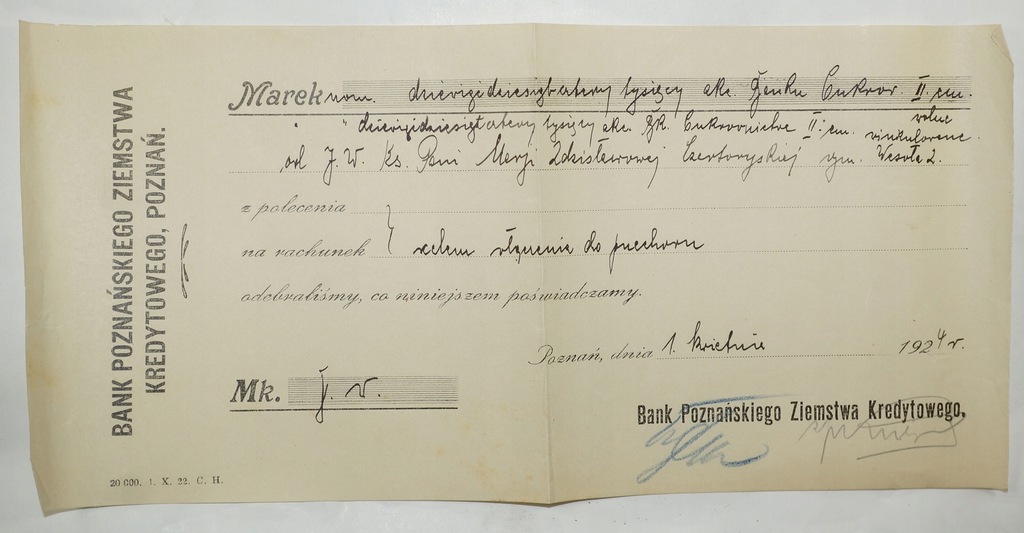 BANK POZNAŃSKIEGO ZIEMSTWA
KREDYTOWEGO, POZNAŃ.
Marek nom. dziewięćdziesiątcztery tysięcy akc. Banku Cukrow. II. em.
" " dziewięćdziesiątcztery tysięcy akc. Bk. Cukrownictwa II. em. vinkulowane
od J. W. Ks. Pani Marji Zdzisławowej Czartoryskiej wym. Wesoła 2.
z polecenia
na rachunek } celem włączenia do przechowu
odebraliśmy, co niniejszem poświadczamy.
Poznań, dnia 1. kwietnia 1924 r.
Mk. j. w.
Bank Poznańskiego Ziemstwa Kredytowego.
20 000. 1. X. 22. C. H.